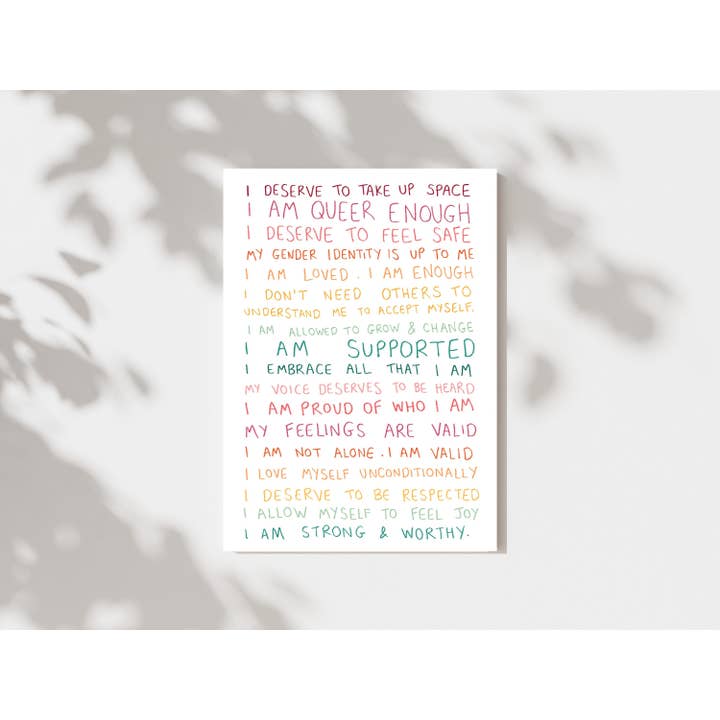 I DESERVE TO TAKE UP SPACE
I AM QUEER ENOUGH
I DESERVE TO FEEL SAFE
MY GENDER IDENTITY IS UP TO ME
I AM LOVED. I AM ENOUGH
I DON'T NEED OTHERS TO
UNDERSTAND ME TO ACCEPT MYSELF.
I AM ALLOWED TO GROW & CHANGE
I AM SUPPORTED
I EMBRACE ALL THAT I AM
MY VOICE DESERVES TO BE HEARD
I AM PROUD OF WHO I AM
MY FEELINGS ARE VALID
I AM NOT ALONE. I AM VALID
I LOVE MYSELF UNCONDITIONALLY
I DESERVE TO BE RESPECTED
I ALLOW MYSELF TO FEEL JOY
I AM STRONG & WORTHY.